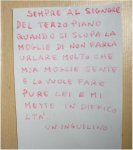 SEMPRE AL SIGNORE
DEL TERZO PIANO
QUANDO SI SLOPA LA
MOGLIE DI NON FARLA
URLARE MOLTO CHE
MIA MOGLIE SENTE
E LO VUOLE FARE
PURE LEI E MI
METTE IN DIFFICO
LTÀ.
UN INQUILINO